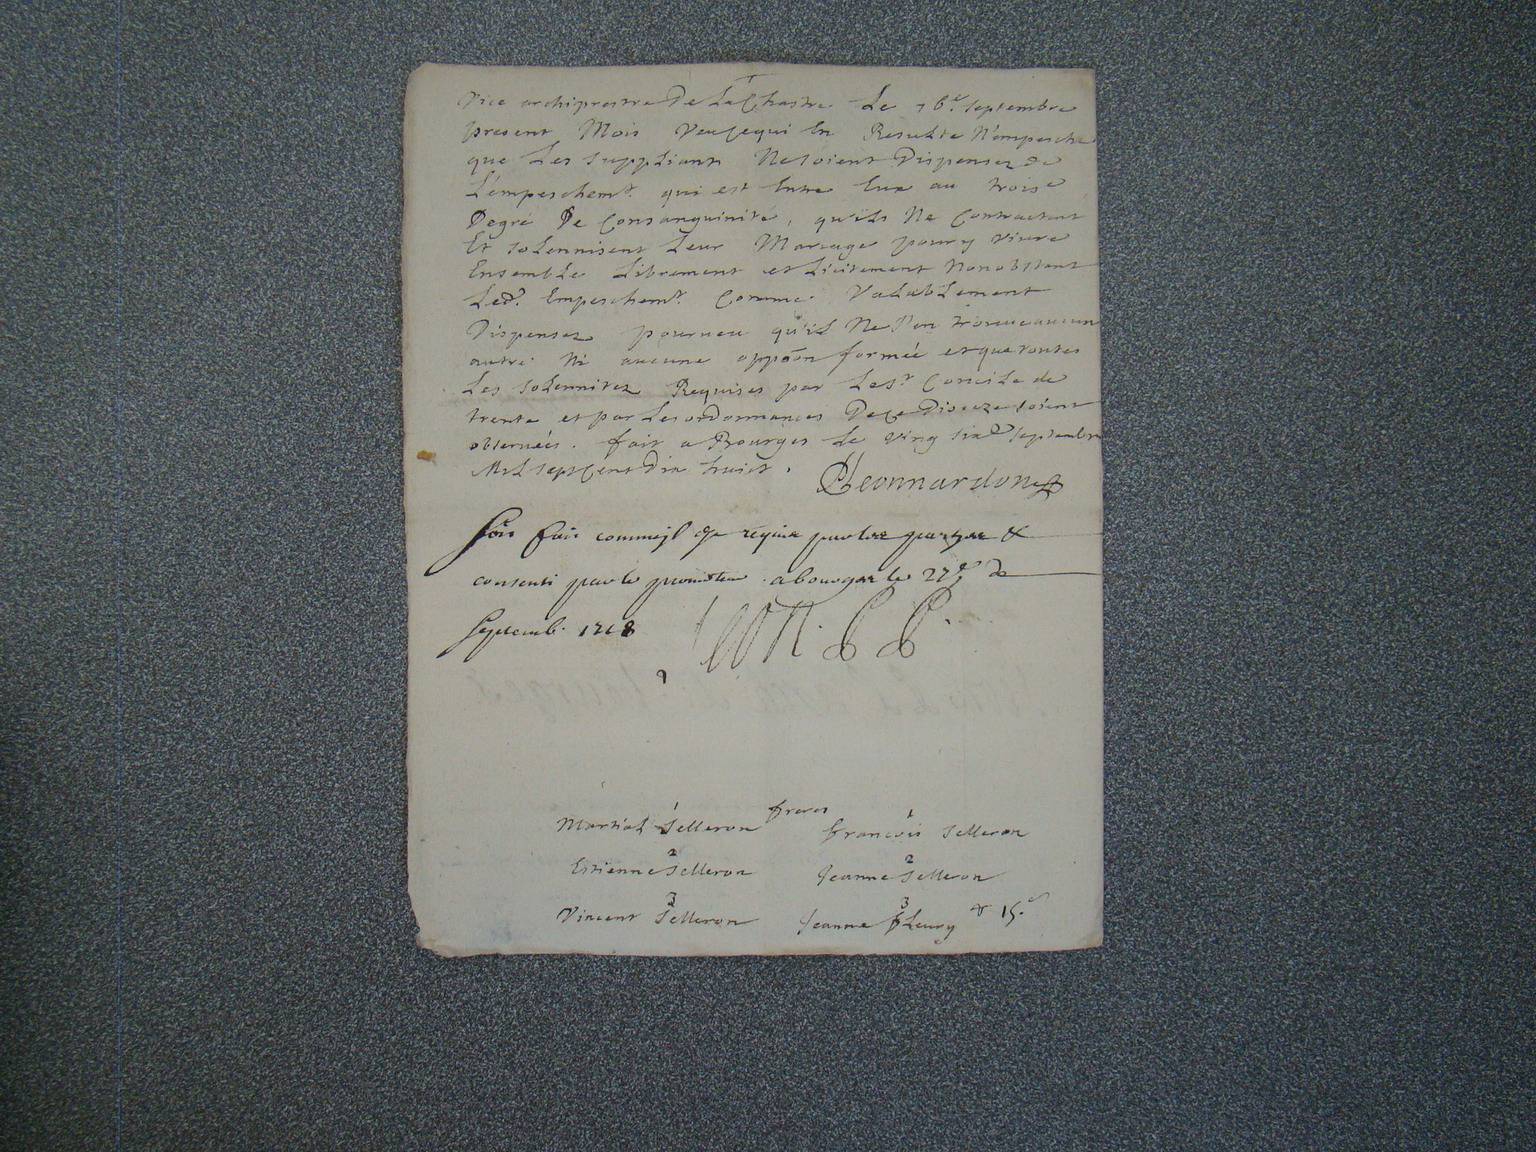 Vice archiprestre De La Chastre Le 16e. septembre
present Mois Veu ce qui En Resulte N'empesche
que Les suppliants Ne soient Dispensez de
L'empeschemt. qui est Entre Eux au troise
Degré De Consanguinité, qu'ils Ne Contractent
Et solennisent Leur Mariage pour y vivre
Ensemble Librement et Licitement Nonobstant
Led. Empeschemt. Comme Valablement
Dispensez pourveu qu'il Ne s'en trouve aucun
autre Ni aucune oppõn formée et que toutes
Les solennitez Requises par Le st Concile de
trente et par Les ordonnances De ce Dioceze soient
observées. fait a Bourges Le ving six septembre
Mil sept Cens Dix huict.
Leonnardon
Soit fait comme il est requis par les parties &
consenti par le promoteur a bourges le 27e de
Septemb. 1718
freres
Martial 1 Selleron François 1 Selleron
Estienne 2 Selleron Jeanne 2 Selleron
Vincent 3 Selleron Jeanne 3 fleury